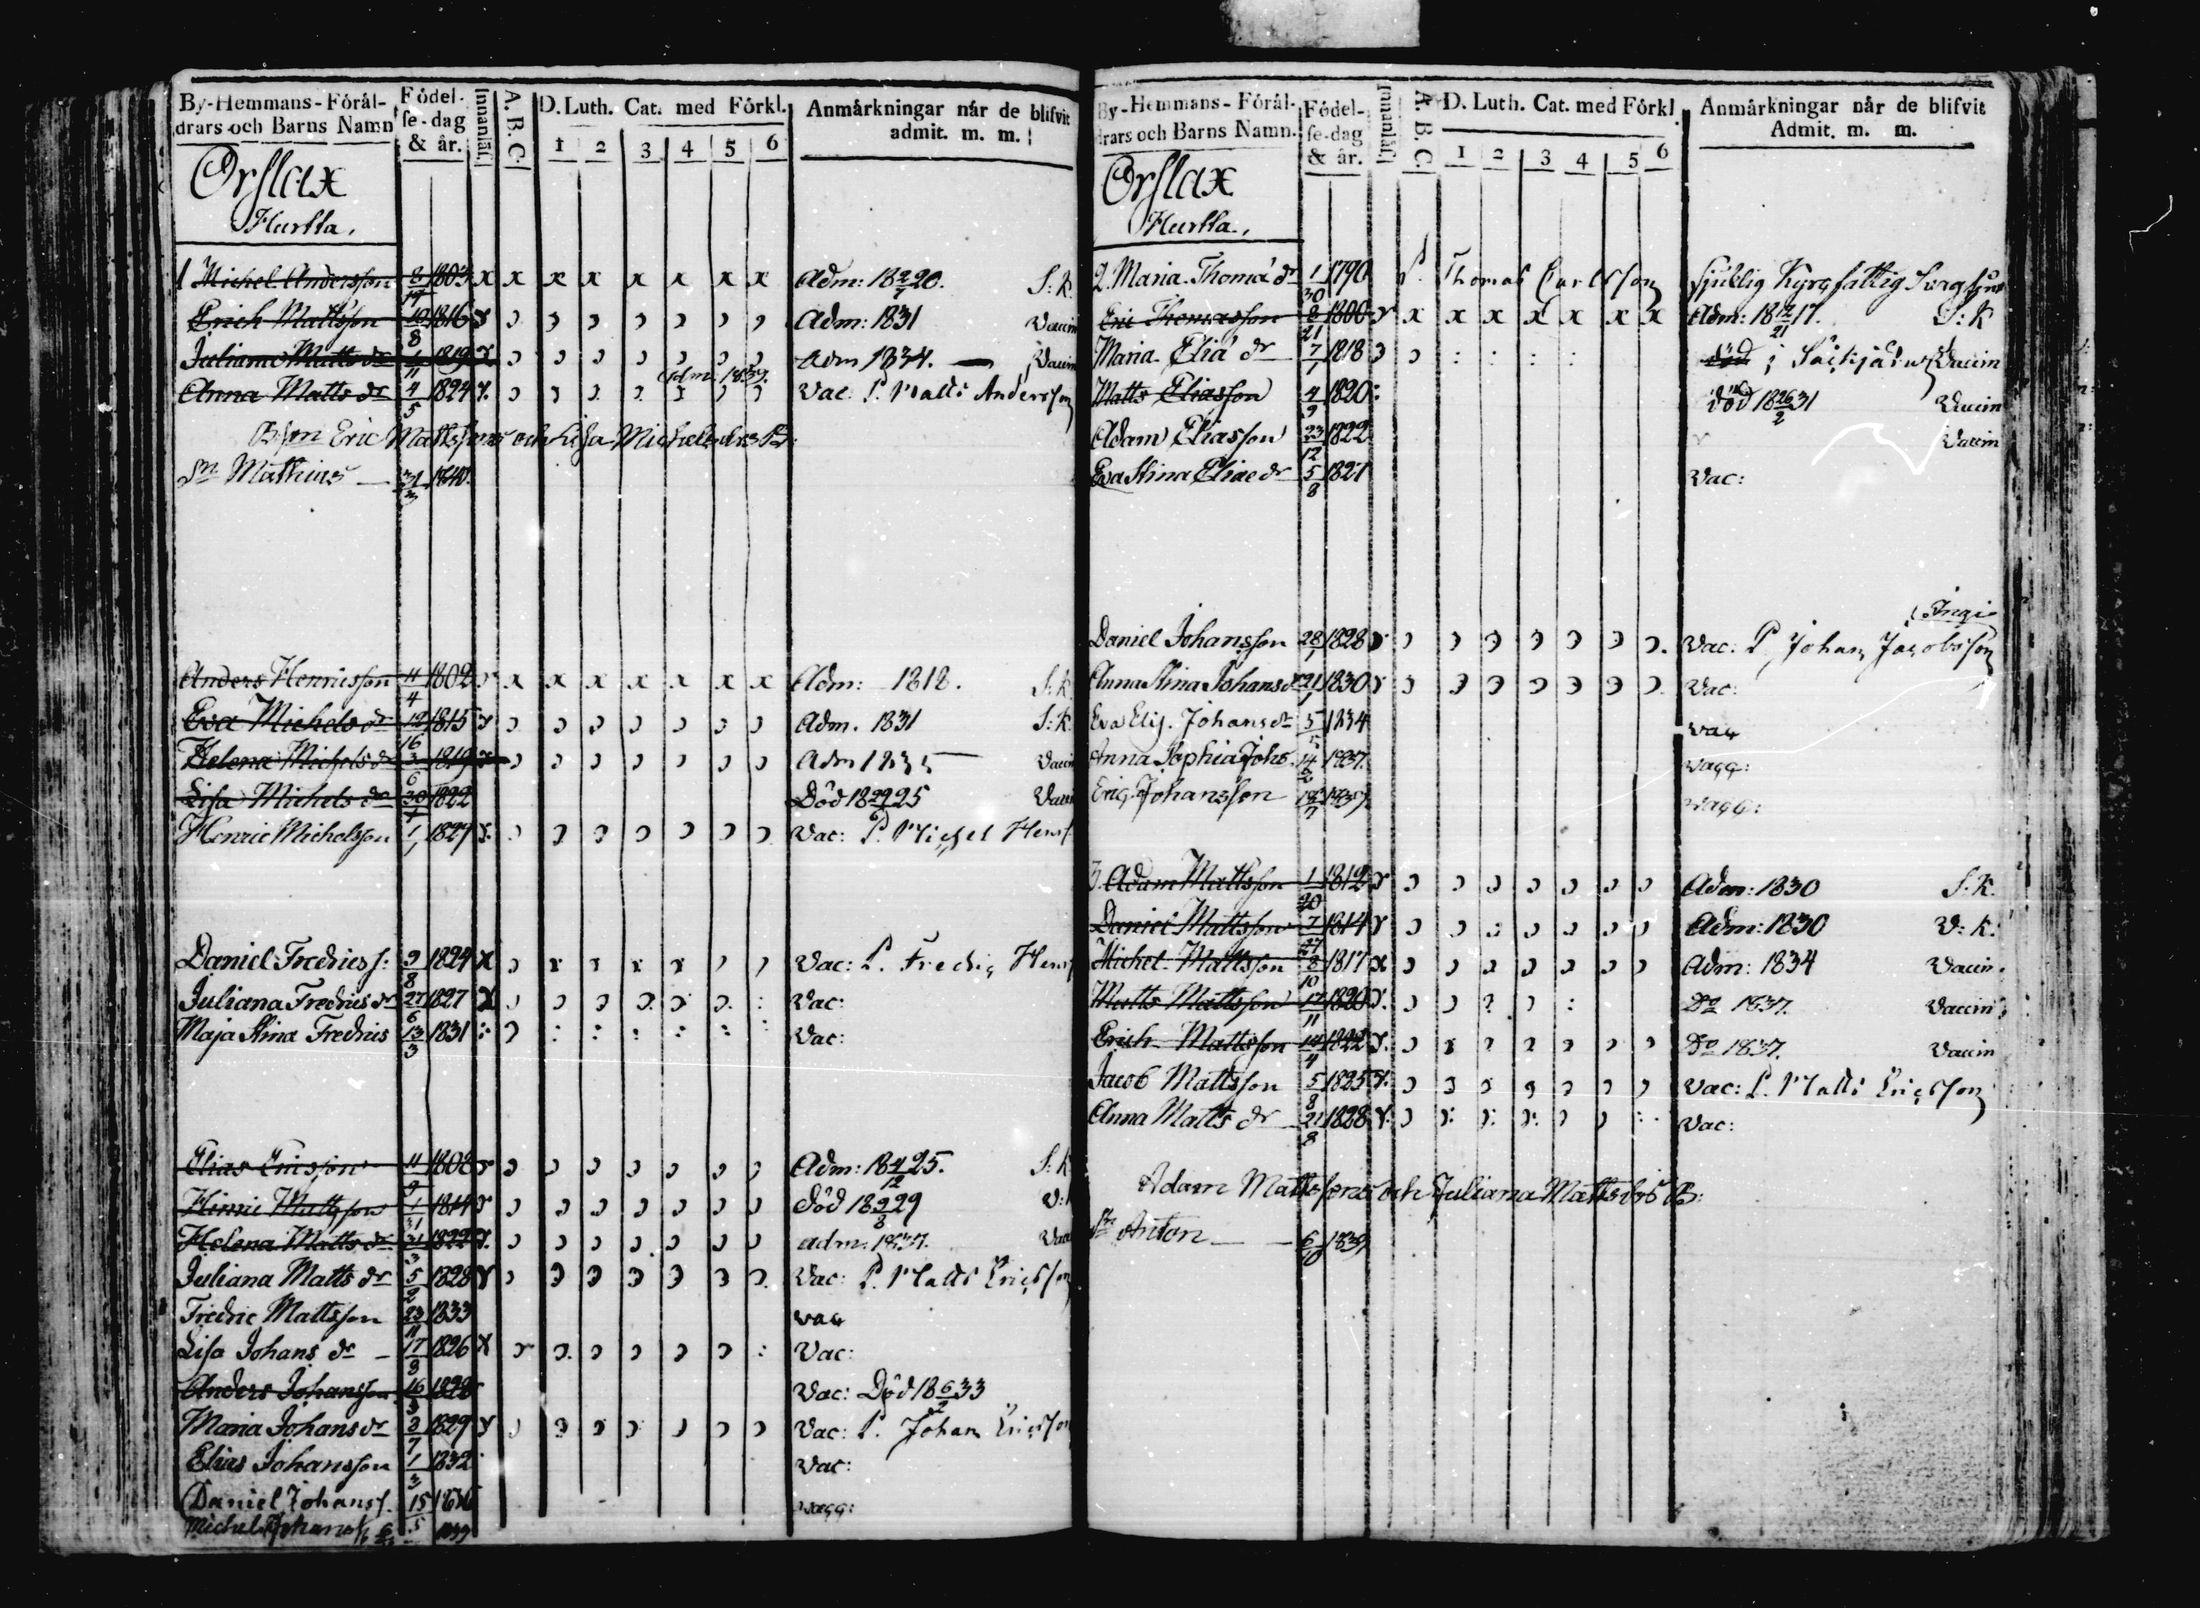 By-Hemmans-Föräl-
drars och Barns Namn
Födel-
se-dag
& år.
Innanläs.
A. B. C.
D. Luth. Cat. med Förkl.
1 2 3 4 5 6
Anmärkningar när de blifvit
admit. m. m.
Orslax
Hurtta.
1 Michel Andersson 8/17 1803 x x x x x x x x Adm: 18 2/7 20. S: K.
Erich Mattsson 10/8 1816 Adm: 1831 Vaccin
Juliana Matts dr 1/11 1819 Adm 1834. Vaccin
Adm. 1839.
Anna Matts dr 4/5 1824 Vac: P. Matts Andersson
Bspn Eric Mattssons och Lisa Michelsdrs B:
Sn Mathias 31/3 1840.
Anders Henricsson 11/4 1802 x x x x x x x Adm: 1818. S: K
Eva Michels dr 12/16 1815 Adm. 1831 S: K
Helena Michels dr 3/6 1819 Adm 1835 Vaccin
Lisa Michels dr 30/1 1822 Död 18 29/9 25 Vaccin
Henric Michelsson 1/1 1827 Vac: P. Michel Henrs.
Daniel Fredrics s: 9/8 1824 Vac: P. Fredric Henrs
Juliana Fredrics dr 27/6 1827 Vac:
Maja Stina Fredrics 13/3 1831 Vac:
Elias Ericsson 11/9 1808 Adm: 18 4/12 25. S: K
Hinric Mattsson 1/31 1814 död 18 3/8 29 V:
Helena Matts dr 31/3 1822 adm. 1837. Vacc
Juliana Matts dr 5/2 1828 Vac: P. Matts Ericsson
Fredric Mattsson 23/11 1833 vac
Lisa Johans dr 17/8 1826 Vac:
Anders Johansson 16/3 1828 Vac: Död 18 6/2 33
Maria Johans dr 3/7 1829 Vac: P. Johan Ericsson
Elias Johansson 1/3 1832 Vac:
Daniel Johanss. 15/5 1836 vacc:
Michel Johanss. 1839
By-Hemmans-Föräl-
drars och Barns Namn.
Födel-
se-dag
& år.
Innanläs.
A. B. C.
D. Luth. Cat. med Förkl.
1 2 3 4 5 6
Anmärkningar när de blifvit
Admit. m. m.
Orslax
Hurtta.
2. Maria Thomæ dr 1/30 1790 P. Thomas Carlsson sjuklig Kyrgfattig
Eric Thomasson 8/21 1800 x x x x x x x Adm: 18 12/21 17. S: K
Maria Eliæ dr 7/1 1818 död i Vaccin
Matts Eliasson 4/9 1820 död 18 26/2 31 Vaccin
Adam Eliasson 23/12 1822 Vaccin
Eva Stina Eliae dr 5/8 1827 Vac:
Daniel Johansson 28/1 1828 Vac: P. Johan Jacobsson
Anna Stina Johans dr 21/1 1830 Vac:
Eva Elis. Johans dr 5/5 1834 vac
Anna Sophia Johs. 14/2 1837. vacc:
Eric Johansson 1839 vacc:
3. Adam Mattsson 1/20 1812 Adm: 1830 S: K.
Daniel Mattsson 7/27 1814 Adm: 1830 V: K:
Michel Mattsson 8/10 1817 Adm: 1834 Vaccin.
Matts Mattsson 17/11 1820 Do 1837. Vaccin
Erich Mattsson 14/4 1822 Do 1837. Vaccin
Jacob Mattsson 5/8 1825 Vac: P. Matts Ericsson
Anna Matts dr 21/8 1828 Vac:
Adam Mattssons och Juliana Mattsdrs B:
Sn Anton 6/10 1839